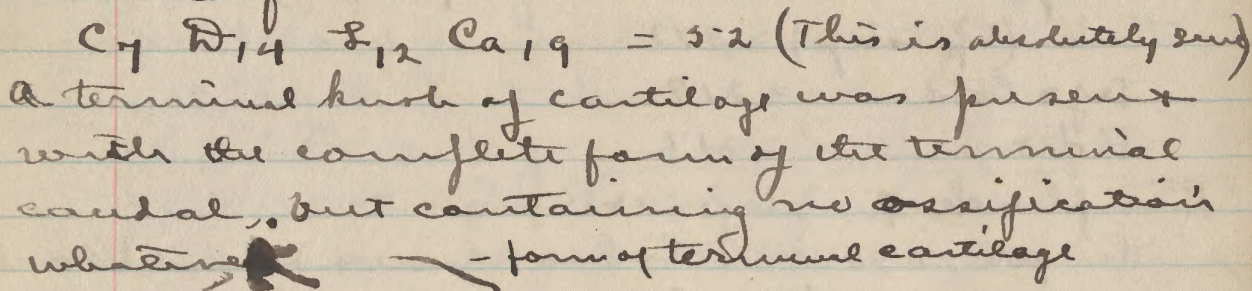 C, 7 D, 14 L, 12 Ca, 19 = 52 (This is absolutely sure)
A terminal knob of cartilage was present
with the complete form of the terminal
caudal, but containing no ossification
whatever - form of terminal cartilage